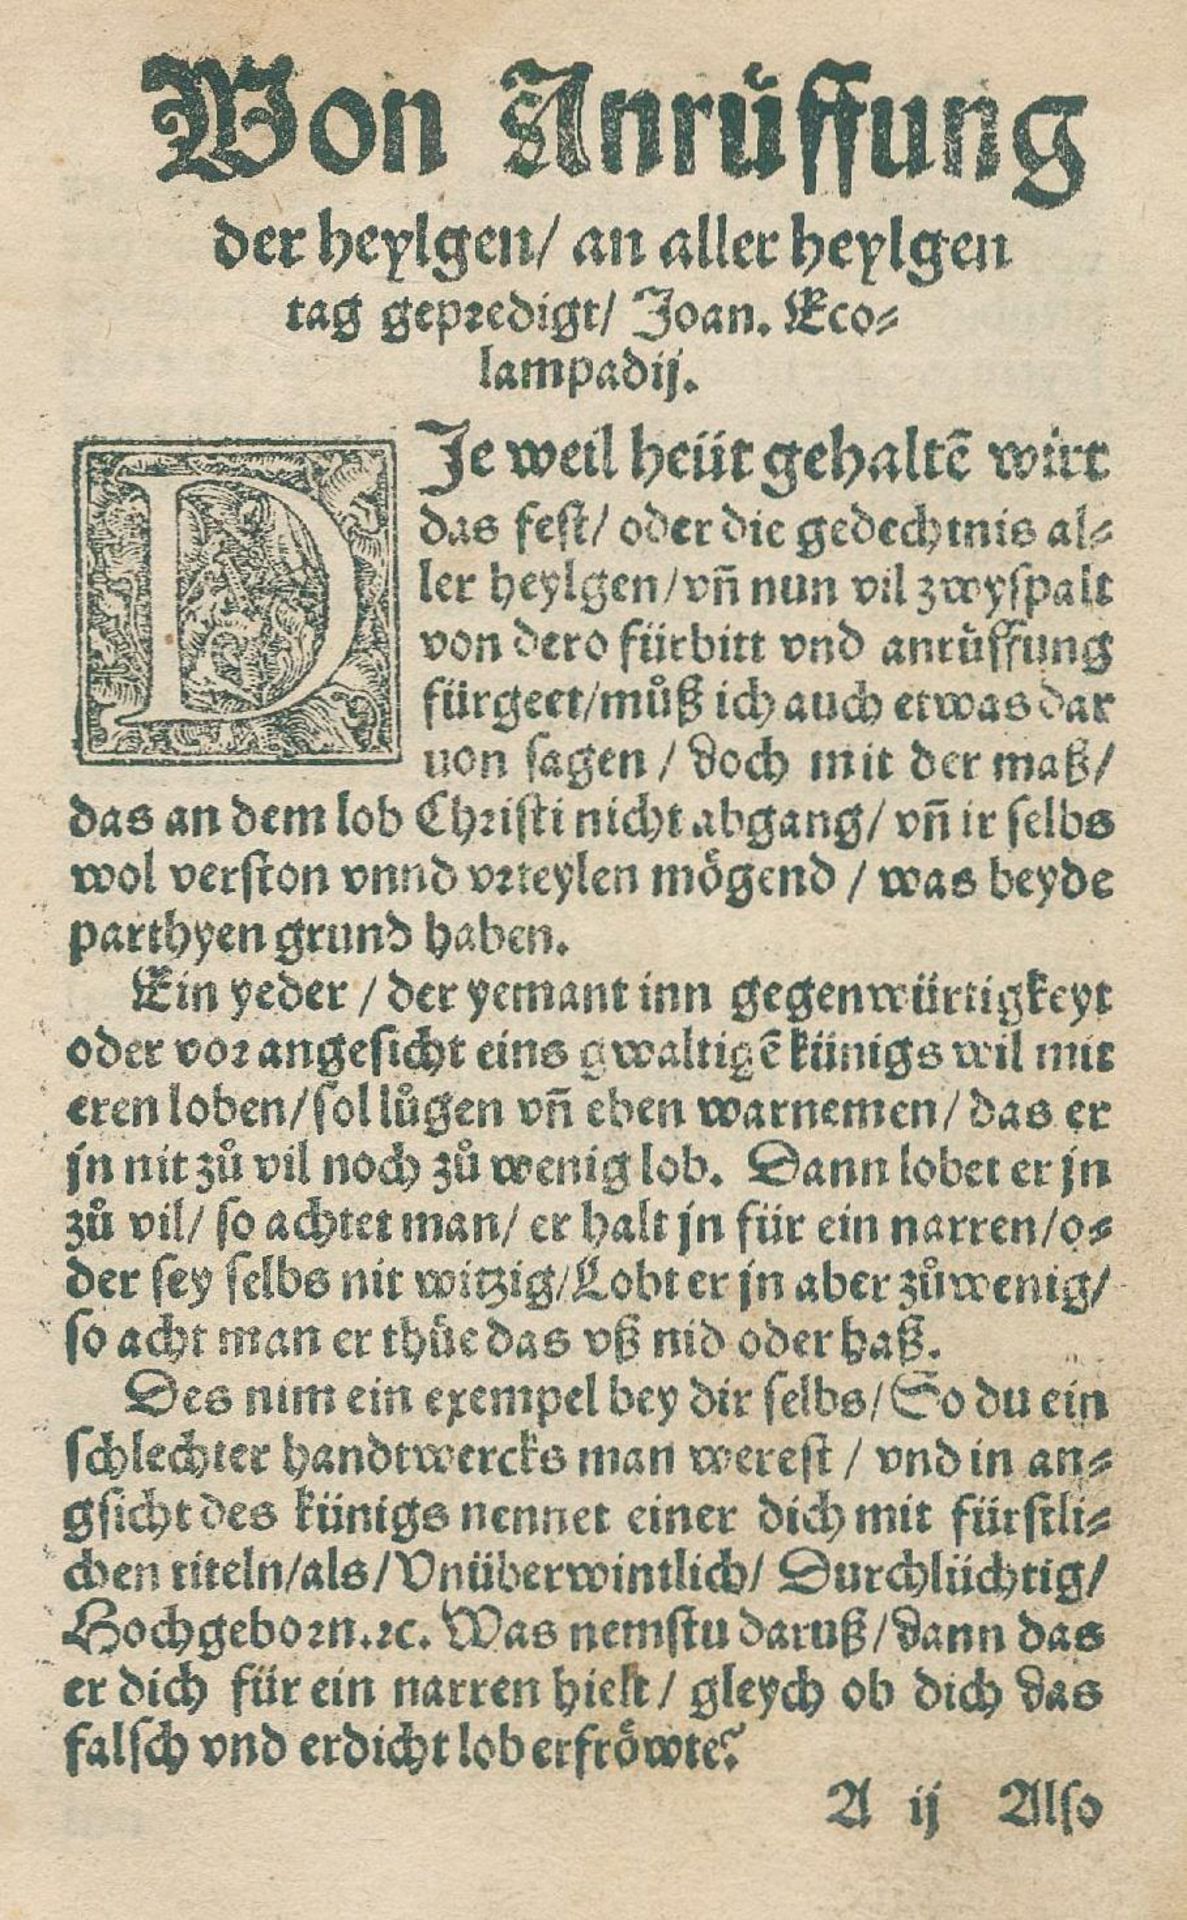 Von Anrůffung
der heylgen/ an aller heylgen
tag gepꝛedigt/ Joan. Eco⸗
lampadij.
DJe weil heüt gehaltē wirt
das fest/ oder die gedechtnis al⸗
ler heylgen/vñ nun vil zwyspalt
von dero fürbitt vnd anrůffung
fürgeet/můß ich auch etwas dar
uon sagen / doch mit der maß/
das an dem lob Chꝛisti nicht abgang/ vñ ir selbs
wol verston vnnd vꝛteylen mögend / was beyde
parthyen grund haben.
Ein yeder / der yemant inn gegenwürtigkeyt
oder voꝛ angesicht eins gwaltigē künigs wil mit
eren loben/sol lůgen vñ eben warnemen/ das er
jn nit zů vil noch zů wenig lob. Dann lobet er jn
zů vil/ so achtet man/ er halt jn für ein narren/o⸗
der sey selbs nit witzig/Lobt er jn aber zů wenig/
so acht man er thüe das vß nid oder haß.
Des nim ein exempel bey dir selbs/ So du ein
schlechter handtwercks man werest / vnd in an⸗
gsicht des künigs nennet einer dich mit fürstli⸗
chen titeln/als/Vnüberwintlich/ Durchlüchtig/
Hochgeboꝛn.ꝛc. Was nemstu daruß/dann das
er dich für ein narren hielt/ gleych ob dich das
falsch vnd erdicht lob erfröwte?
A ij Also